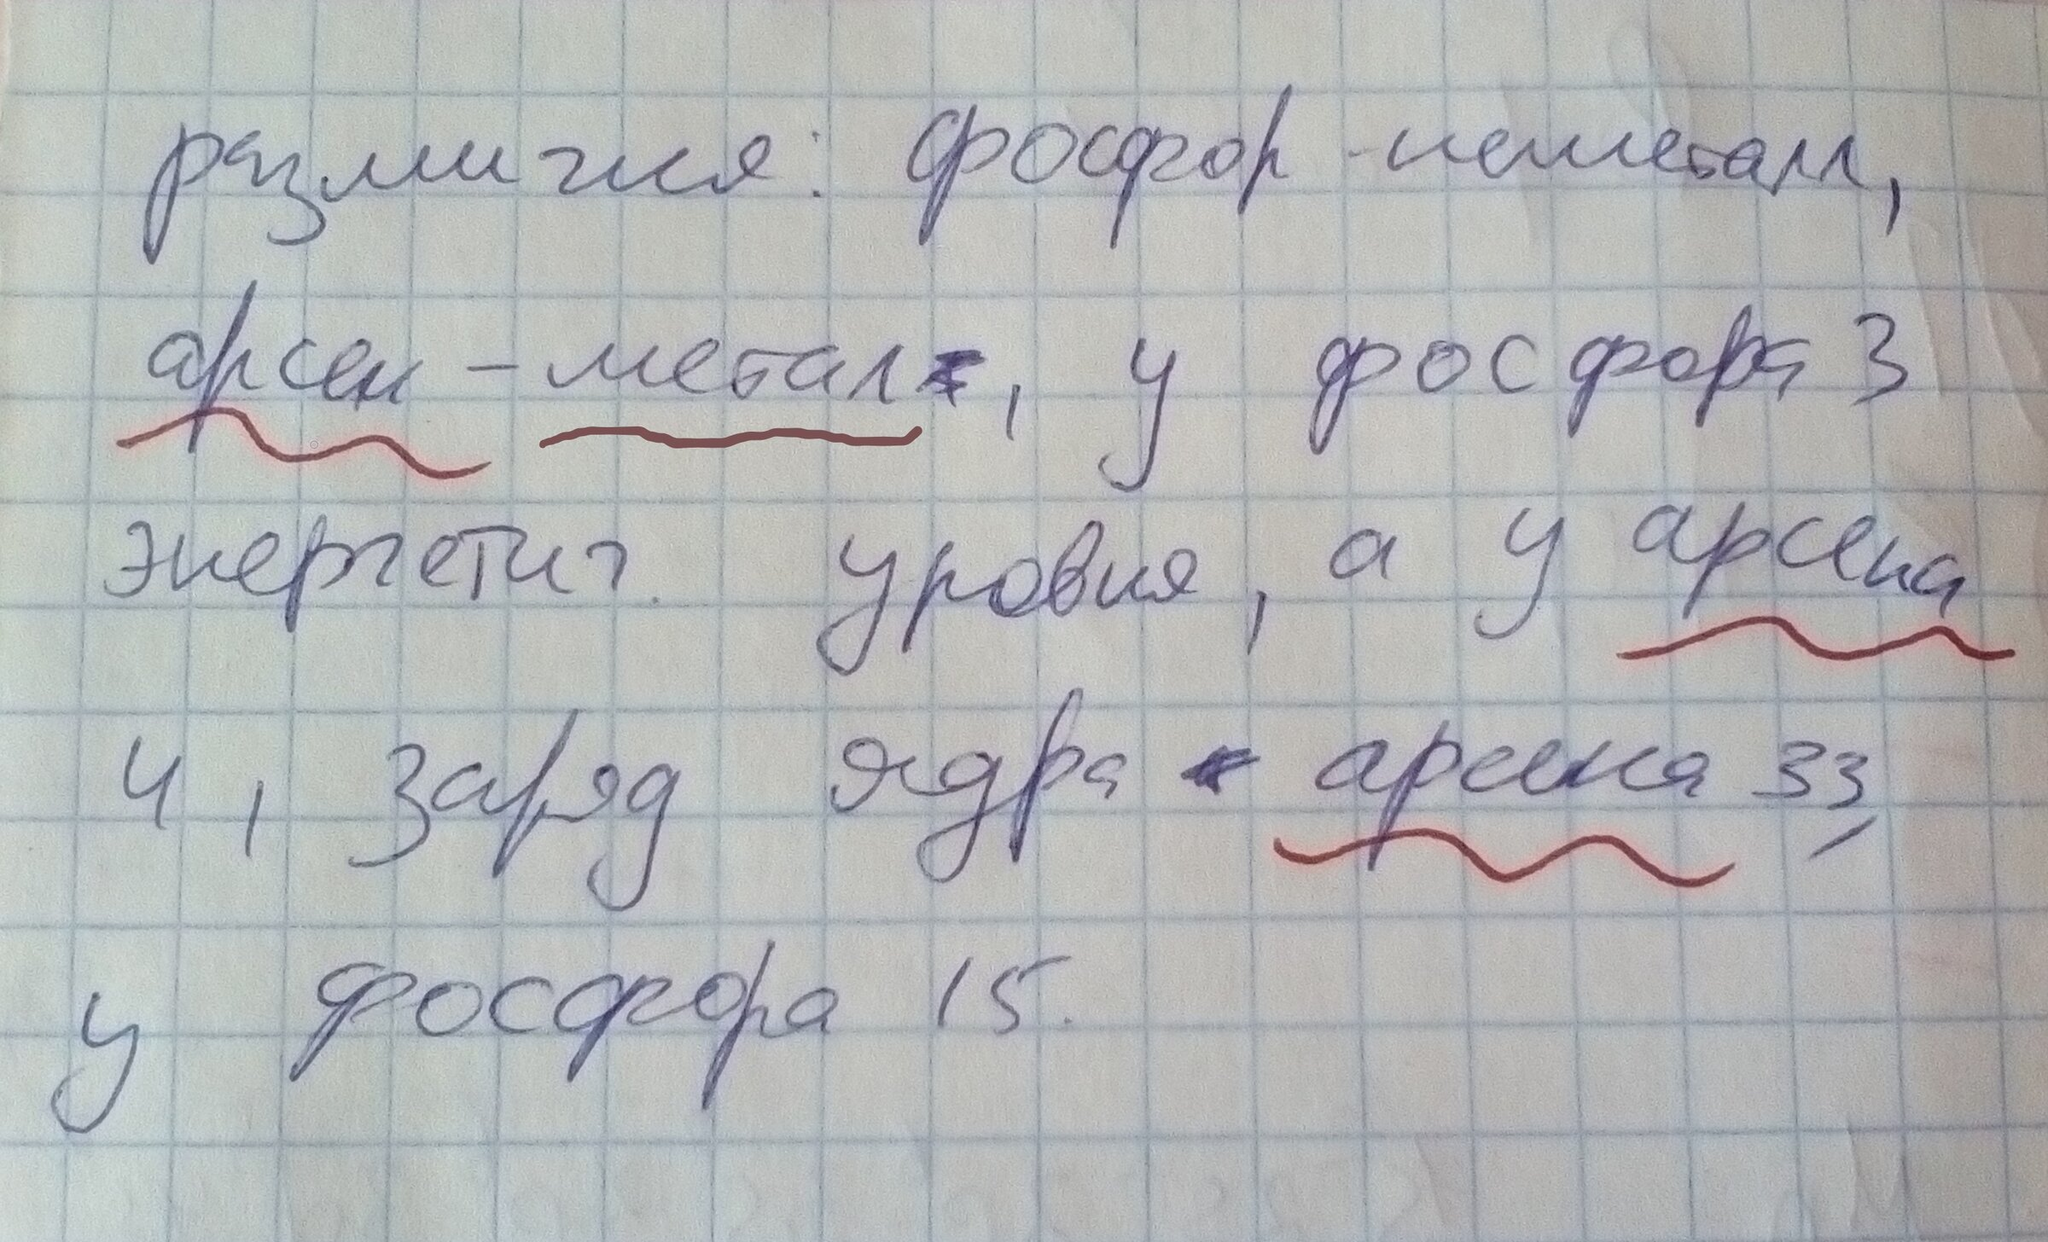 различия: фосфор - неметалл,
арсен - метал, у фосфора 3
энергетич. уровня, а у арсена
4, заряд ядра арсена 33,
у фосфора 15.